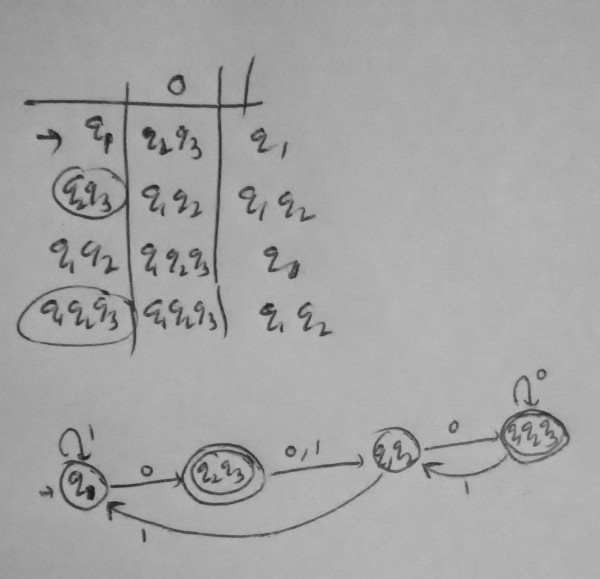 0 1
→ q₁ q₂q₃ q₁
q₂q₃ q₁q₂ q₁q₂
q₁q₂ q₁q₂q₃ q₁
q₁q₂q₃ q₁q₂q₃ q₁q₂
1 0
q₁ 0 q₂q₃ 0,1 q₁q₂ 0 q₁q₂q₃
1 1